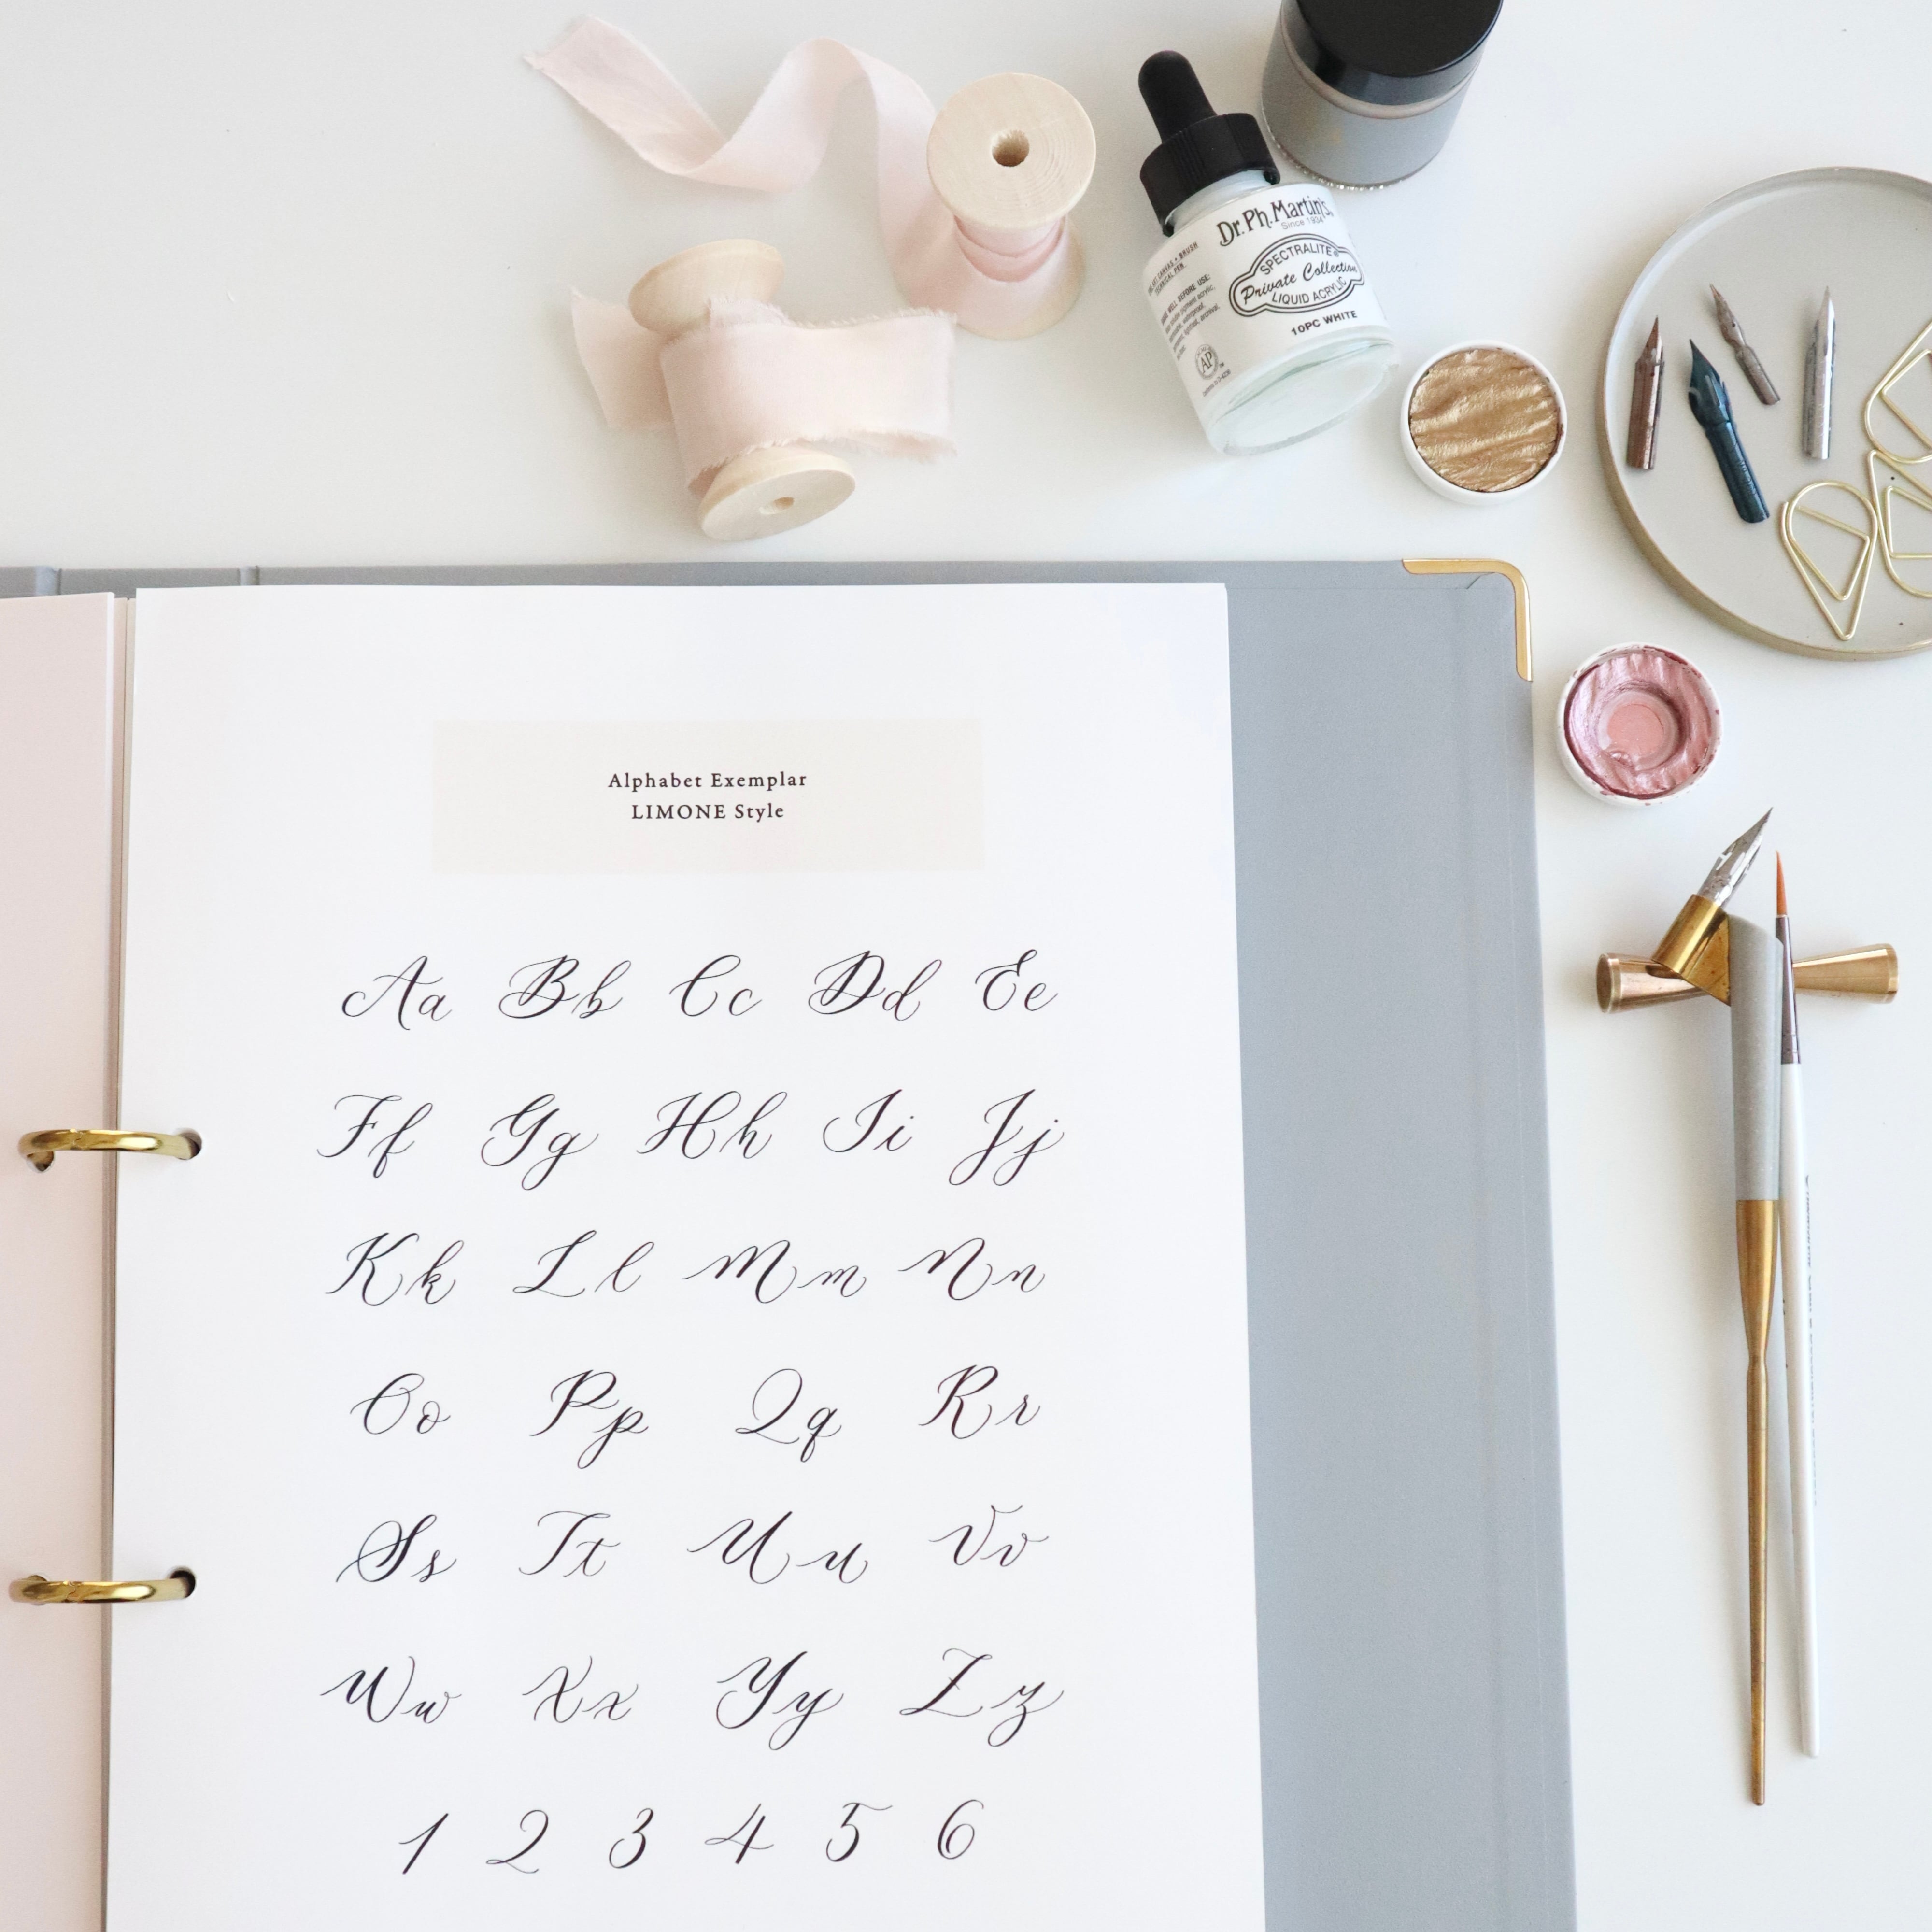 Dr. Ph. Martin's
Since 1934
SPECTRALITE
Private Collection
LIQUID ACRYLIC
10PC WHITE
AP
Alphabet Exemplar
LIMONE Style
Aa Bb Cc Dd Ee
Ff Gg Hh Ii Jj
Kk Ll Mm Nn
Oo Pp Qq Rr
Ss Tt Uu Vv
Ww Xx Yy Zz
1 2 3 4 5 6